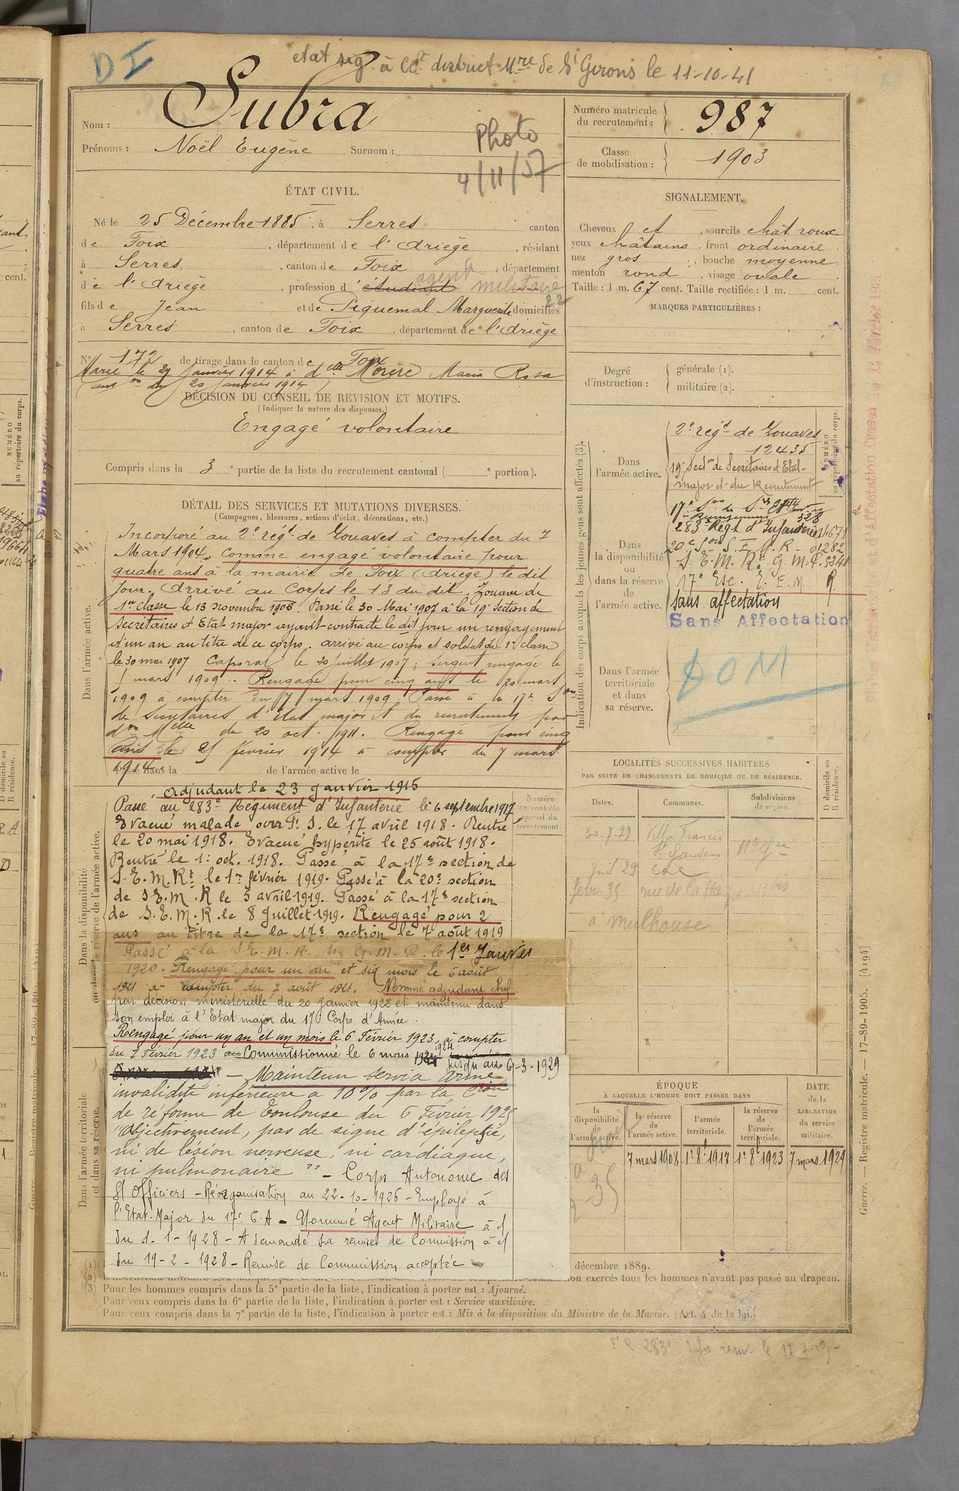 DI
etat sig. à Ct district Mre de St Girons le 11-10-41
Nom : Subra
Prénoms : Noël Eugène Surnom :
Photo
4/11/57
Numéro matricule du recrutement : 987
Classe de mobilisation : 1903
ÉTAT CIVIL.
Né le 25 Décembre 1885, à Serres canton
de Foix, département de l'Ariège, résidant
à Serres, canton de Foix, département
de l'Ariège, profession d'étudiant agent militaire
fils de Jean et de Piquemal Marguerite domiciliés
à Serres, canton de Foix, département de l'Ariège
N° 172 de tirage dans le canton de Foix
Marié le 29 Janvier 1914 à dlle Morère Maria Rosa
DÉCISION DU CONSEIL DE REVISION ET MOTIFS.
(Indiquer la nature des dispenses.)
Engagé volontaire
Compris dans la 3e partie de la liste du recrutement cantonal ( e portion).
SIGNALEMENT.
Cheveux et sourcils chât roux
yeux châtains, front ordinaire
nez gros, bouche moyenne
menton rond, visage ovale
Taille : 1 m. 67 cent. Taille rectifiée : 1 m. cent.
MARQUES PARTICULIÈRES :
Degré d'instruction : générale (1).
militaire (2).
DÉTAIL DES SERVICES ET MUTATIONS DIVERSES.
(Campagnes, blessures, actions d'éclat, décorations, etc.)
Dans l'armée active.
Incorporé au 2e régt de Zouaves à compter du 7
Mars 1904, comme engagé volontaire pour
quatre ans à la mairie de Foix (Ariège) le dit
jour. Arrivé au Corps le 13 du dit. Zouave de
1ère classe le 13 novembre 1906. Passé le 30 Mai 1907 à la 19e Section de
Secrétaires d'Etat major ayant contracté le dit jour un rengagement
d'un an au titre de ce corps. arrivé au corps et soldat de 1e classe
le 30 mai 1907 Caporal le 30 juillet 1907; sergent rengagé le
mars 1909. Rengagé pour cinq ans le 20 mars
1909 à compter du 7 mars 1909 Passé à la 17e Son
de secrétaires d'état major et du recrutement par
don Melle du 20 oct. 1911. Rengagé pour cinq
ans le 25 février 1914 à compter du 7 mars
1914 dans la de l'armée active le
Adjudant le 23 janvier 1915
Dans la disponibilité ou dans la réserve de l'armée active.
Passé au 283e Régiment d'Infanterie le 6 septembre 1917
Evacué malade le 17 avril 1918. Rentré
le 20 mai 1918. Evacué hypérité le 25 août 1918.
Rentré le 1er oct. 1918. Passé à la 17e section de
S.E.M.Rt le 1er février 1919. Passé à la 20e section
de S.E.M.R le 3 avril 1919. Passé à la 17e section
de S.E.M.R. le 8 Juillet 1919. Rengagé pour 2
ans au titre de la 17e section le 7 août 1919
Passé à la S.E.M.R. G.M.P. le 1er Janvier
1920. Rengagé pour un an et six mois le 6 août
1921 à compter du 7 août 1921. Nommé adjudant chef
par décision ministérielle du 20 janvier 1922 et maintenu dans
son emploi à l'Etat major du 17e Corps d'Armée.
Rengagé pour un an et un mois le 6 Février 1923 à compter
du 7 Février 1923 Commissionné le 6 mars 1924 jusqu'au 6-3-1929
Maintenu service armé
invalidité inférieure à 10% par la Cion
de réforme de Toulouse du 6 Février 1925
"Objectivement, pas de signe d'épilepsie,
ni de lésion nerveuse, ni cardiaque,
ni pulmonaire" - Corps Autonome des
S/Officiers - Réorganisation au 22-10-1926 - Employé à
l'Etat-Major du 17e C.A - Nommé Agent Militaire à c/
du 1-1-1928 - A demandé sa remise de Commission à c/
du 19-2-1928 - Remise de Commission acceptée
Dans l'armée territoriale et dans sa réserve.
Numéro au contrôle spécial du recrutement
Indication des corps auxquels les jeunes gens sont affectés (3).
NUMÉRO au répertoire du corps.
Dans l'armée active.
2e régt de Zouaves
12435
19e Section de Secrétaires d'Etat-
major et du Recrutement
Dans la disponibilité ou dans la réserve de l'armée active.
283e Régt d'Infanterie
20e Son S.E.M.R. 01282
S.E.M.R. G.M.P.
17e Esc. E.E.M. R.
sans affectation
Sans Affectation
Dans l'armée territoriale et dans sa réserve.
DOM
LOCALITÉS SUCCESSIVES HABITÉES
PAR SUITE DE CHANGEMENTS DE DOMICILE OU DE RÉSIDENCE.
Dates. Communes. Subdivisions de région. D domicile ou R résidence.
20-7-29 Villa Frances
St Gaudens
juil 29
fevr 35 rue de la
à Mulhouse
ÉPOQUE
À LAQUELLE L'HOMME DOIT PASSER DANS
DATE de la LIBÉRATION du service militaire.
la disponibilité de l'armée active. la réserve de l'armée active. l'armée territoriale. la réserve de l'armée territoriale.
7 mars 1908 1er 8bre 1917 1er 8bre 1923 7 mars 1929
décembre 1889.
non exercés tous les hommes n'ayant pas passé au drapeau.
Pour les hommes compris dans la 5e partie de la liste, l'indication à porter est : Ajourné.
Pour ceux compris dans la 6e partie de la liste, l'indication à porter est : Service auxiliaire.
Pour ceux compris dans la 7e partie de la liste, l'indication à porter est : Mis à la disposition du Ministre de la Marine. (Art. 4 de la loi.)
Guerre. — Registre matricule. — 17-89-1905. [4194]